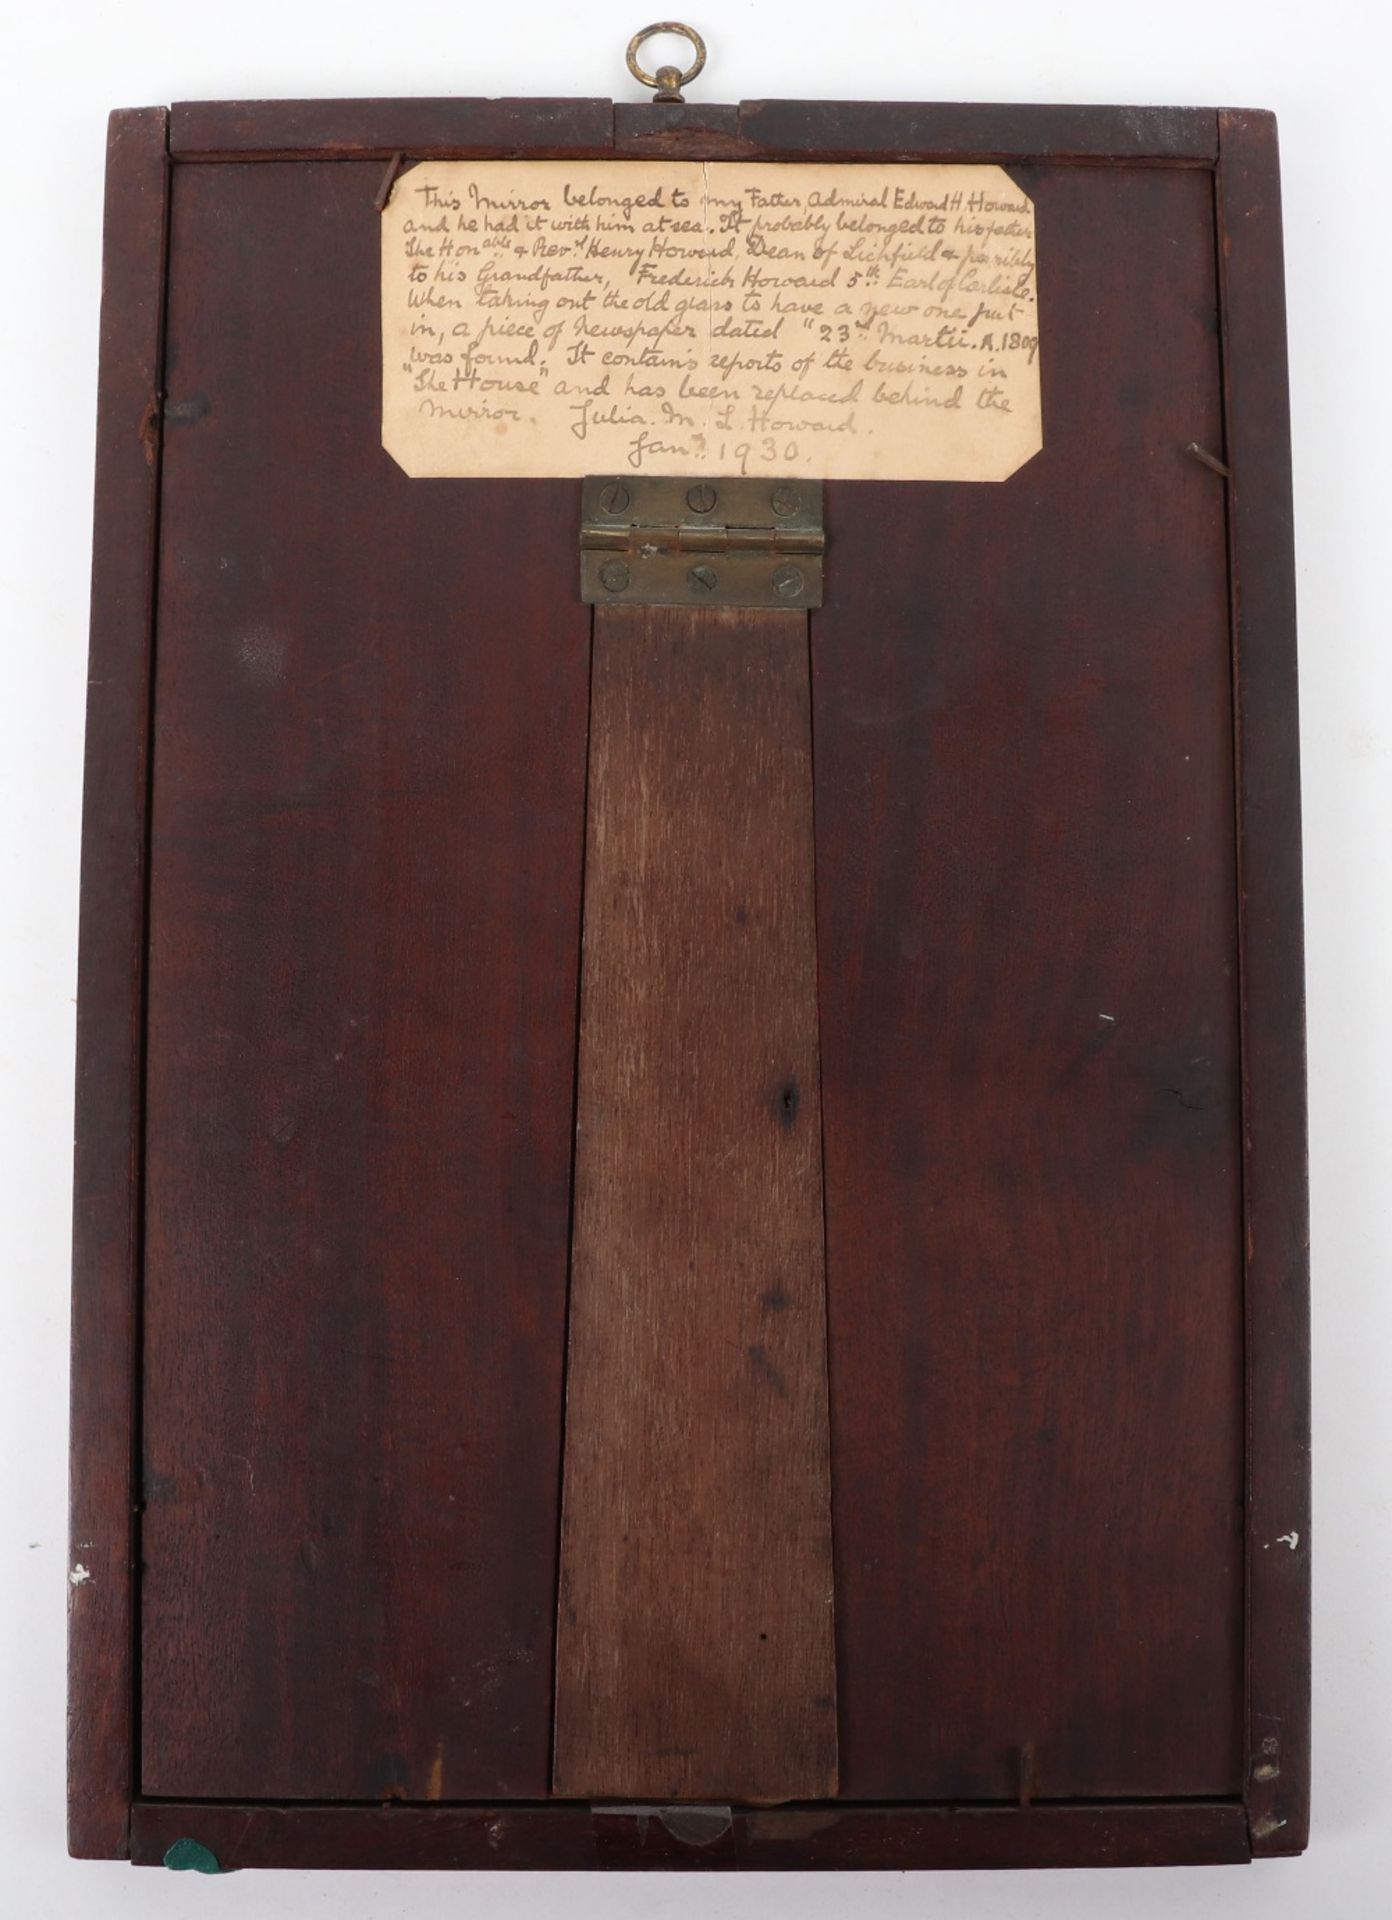 This Mirror belonged to my Father, Admiral Edward H Howard
and he had it with him at sea. It probably belonged to his father
The Honable & Revd Henry Howard, Dean of Lichfield & possibly
to his Grandfather, Frederick Howard 5th Earl of Carlisle.
When taking out the old glass to have a new one put
in, a piece of newspaper dated "23rd Martii. A. 1809
was found. It contains reports of the business in
"The House" and has been replaced behind the
mirror. Julia. M. L. Howard.
Jany. 1930.